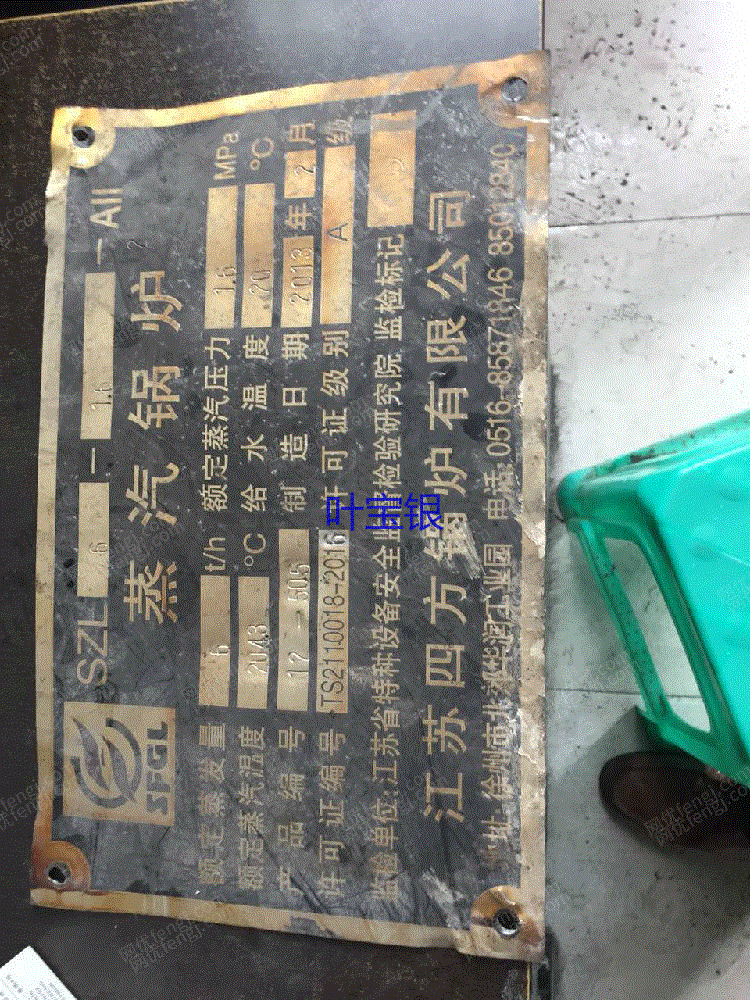 SZL 6 — 1.6 — AII
SFGL
蒸汽锅炉
额定蒸发量 6 t/h 额定蒸汽压力 1.6 MPa
额定蒸汽温度 204.3 °C 给水温度 20 °C
产品编号 12 505 制造日期 2013 年 2 月
许可证编号 TS2110018-2016 许可证级别 A 级
监检单位:江苏省特种设备安全监督检验研究院 监检标记
江苏四方锅炉有限公司
地址:徐州市北郊华润工业园 电话:0516-85871846 85012840
叶宝银